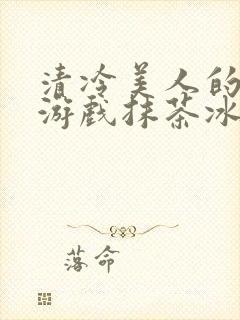 清冷美人的
游戏抹茶冰
落命